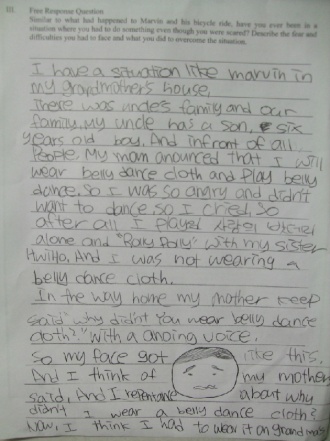 III Free Response Question
Similar to what had happened to Marvin and his bicycle ride, have you ever been in a
situation where you had to do something even though you were scared? Describe the fear and
difficulties you had to face and what you did to overcome the situation.
I have a situation like marvin in
my grandmother's house.
There was uncle's family and our
family. My uncle has a son, six
years old boy. And infront of all
People, My mom anounced that I will
wear belly dance cloth and Play belly
dance. So I was so angry and didn't
want to dance so I cried. So
after all I played
alone and "Roly Poly" with my sister
Hwiho. And I was not wearing a
belly dance cloth.
In the way home my mother keep
said "why didn't you wear belly dance
cloth?" with a anoing voice.
So my face got like this.
And I think of my mother
said, And I repentance about why
didn't I wear a belly dance cloth?
Now, I think I had to wear it on grandma's